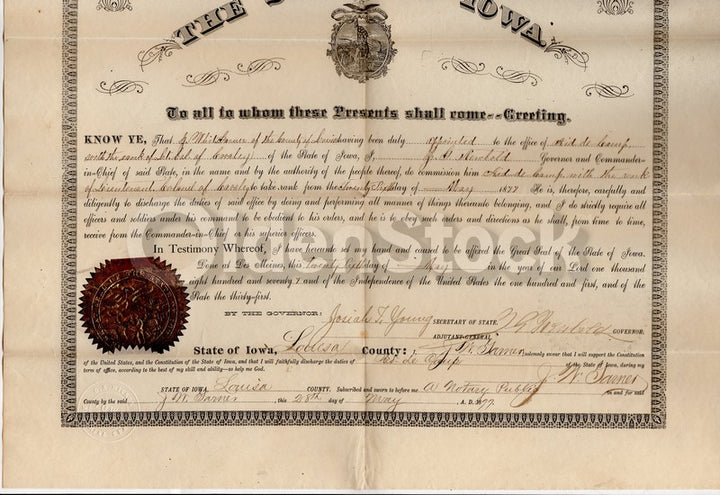 THE S IOWA,
To all to whom these Presents shall come--Greeting.
KNOW YE, That J. Whit Garner of the County of Louisa having been duly appointed to the office of Aid de Camp
with the rank of Lt Col of Cavalry of the State of Iowa, I, Newbold Governor and Commander-
in-Chief of said State, in the name and by the authority of the people thereof, do commission him Aid de Camp with the rank
of Lieutenant Colonel of Cavalry to take rank from the day of May 1877 He is, therefore, carefully and
diligently to discharge the duties of said office by doing and performing all manner of things thereunto belonging, and I do strictly require all
officers and soldiers under his command to be obedient to his orders, and he is to obey such orders and directions as he shall, from time to time,
receive from the Commander-in-Chief or his superior officers.
In Testimony Whereof, I have hereunto set my hand and caused to be affixed the Great Seal of the State of Iowa.
Done at Des Moines, this day of May in the year of our Lord one thousand
eight hundred and seventy.7. and of the Independence of the United States the one hundred and first, and of the
State the thirty-first.
BY THE GOVERNOR:
Josiah T. Young SECRETARY OF STATE. Newbold GOVERNOR.
ADJUTANT-GENERAL.
State of Iowa, Louisa County: I, J. W. Garner solemnly swear that I will support the Constitution
of the United States, and the Constitution of the State of Iowa, and that I will faithfully discharge the duties of Aid de Camp of the State of Iowa, during my
term of office, according to the best of my skill and ability—so help me God.
J. W. Garner
STATE OF IOWA, Louisa COUNTY. Subscribed and sworn to before me, A Notary Public in and for said
County by the said J W. Garner, this 28th day of May A. D. 1877.